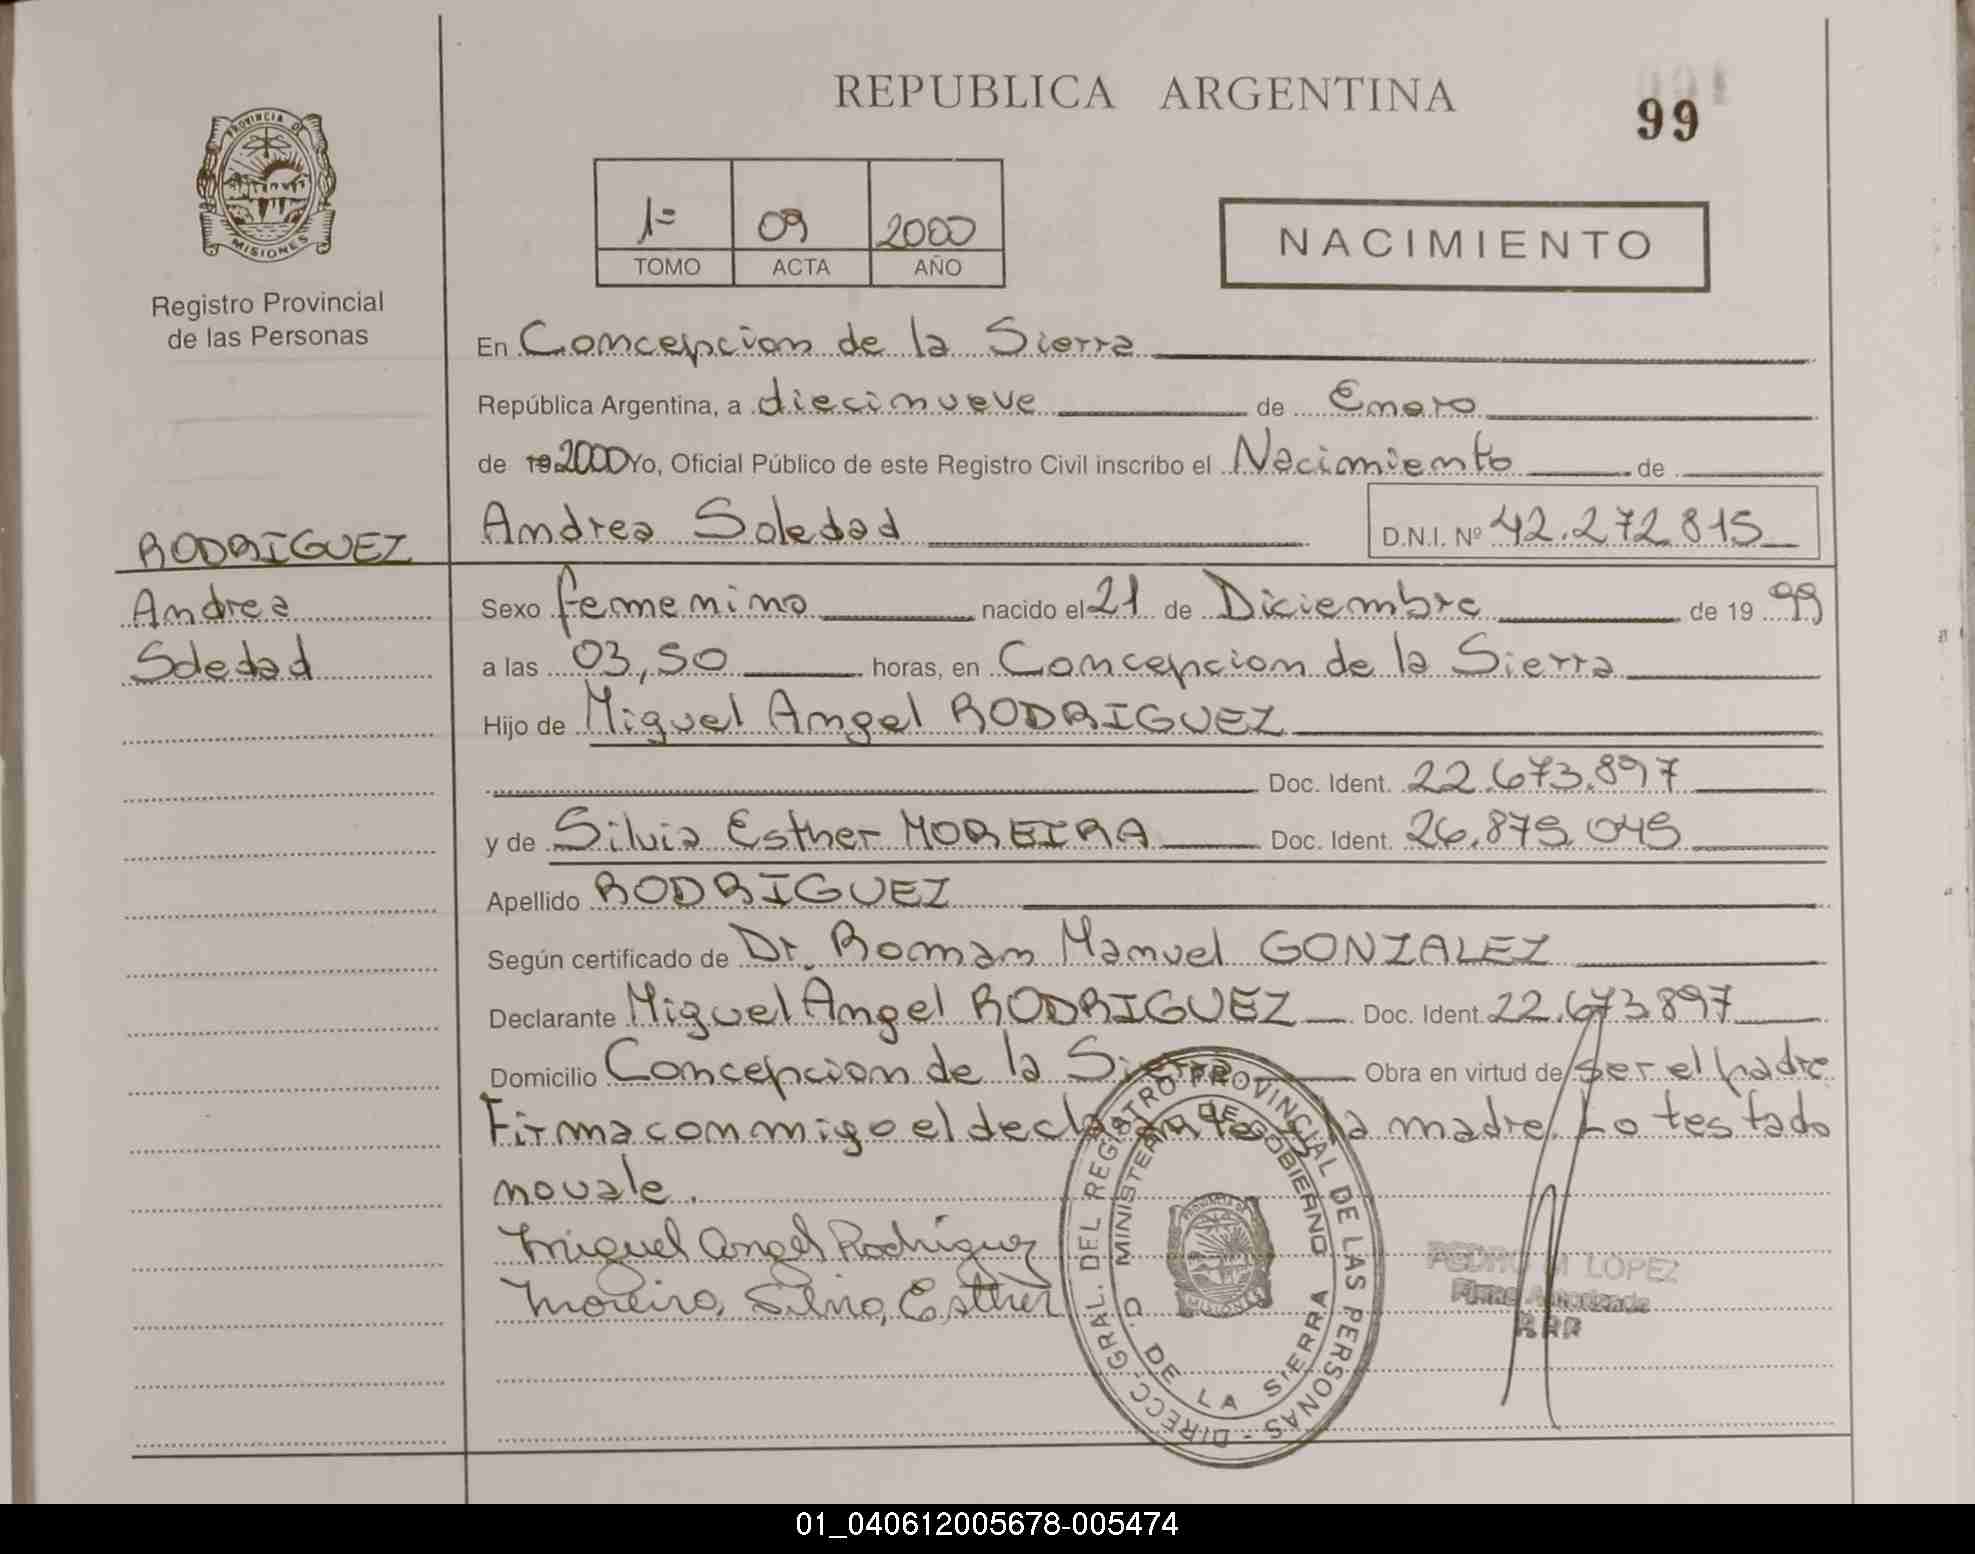 REPUBLICA ARGENTINA
99
PROVINCIA DE
MISIONES
Registro Provincial
de las Personas
1= 09 2000
TOMO ACTA AÑO
NACIMIENTO
En Concepcion de la Sierra
República Argentina, a diecinueve de Enero
de 19 2000 Yo, Oficial Público de este Registro Civil inscribo el Nacimiento de
Andrea Soledad D.N.I. Nº 42.272.815
RODRIGUEZ
Andrea
Soledad
Sexo femenino nacido el 21 de Diciembre de 19 99
a las 03,50 horas, en Concepcion de la Sierra
Hijo de Miguel Angel RODRIGUEZ
Doc. Ident. 22.673.897
y de Silvia Esther MOREIRA Doc. Ident. 26.875.045
Apellido RODRIGUEZ
Según certificado de Dr. Roman Manuel GONZALEZ
Declarante Miguel Angel RODRIGUEZ Doc. Ident. 22.673.897
Domicilio Concepcion de la Sierra Obra en virtud de ser el padre
Firma conmigo el declarante y la madre. Lo testado
no vale.
Miguel Angel Rodriguez
Moreira, Silvia, Esther
DIRECC. GRAL. DEL REGISTRO PROVINCIAL DE LAS PERSONAS -
MINISTERIO DE GOBIERNO
C. DE LA SIERRA
PROVINCIA DE
MISIONES
PEDRO M LOPEZ
Firma Autorizada
01_040612005678-005474